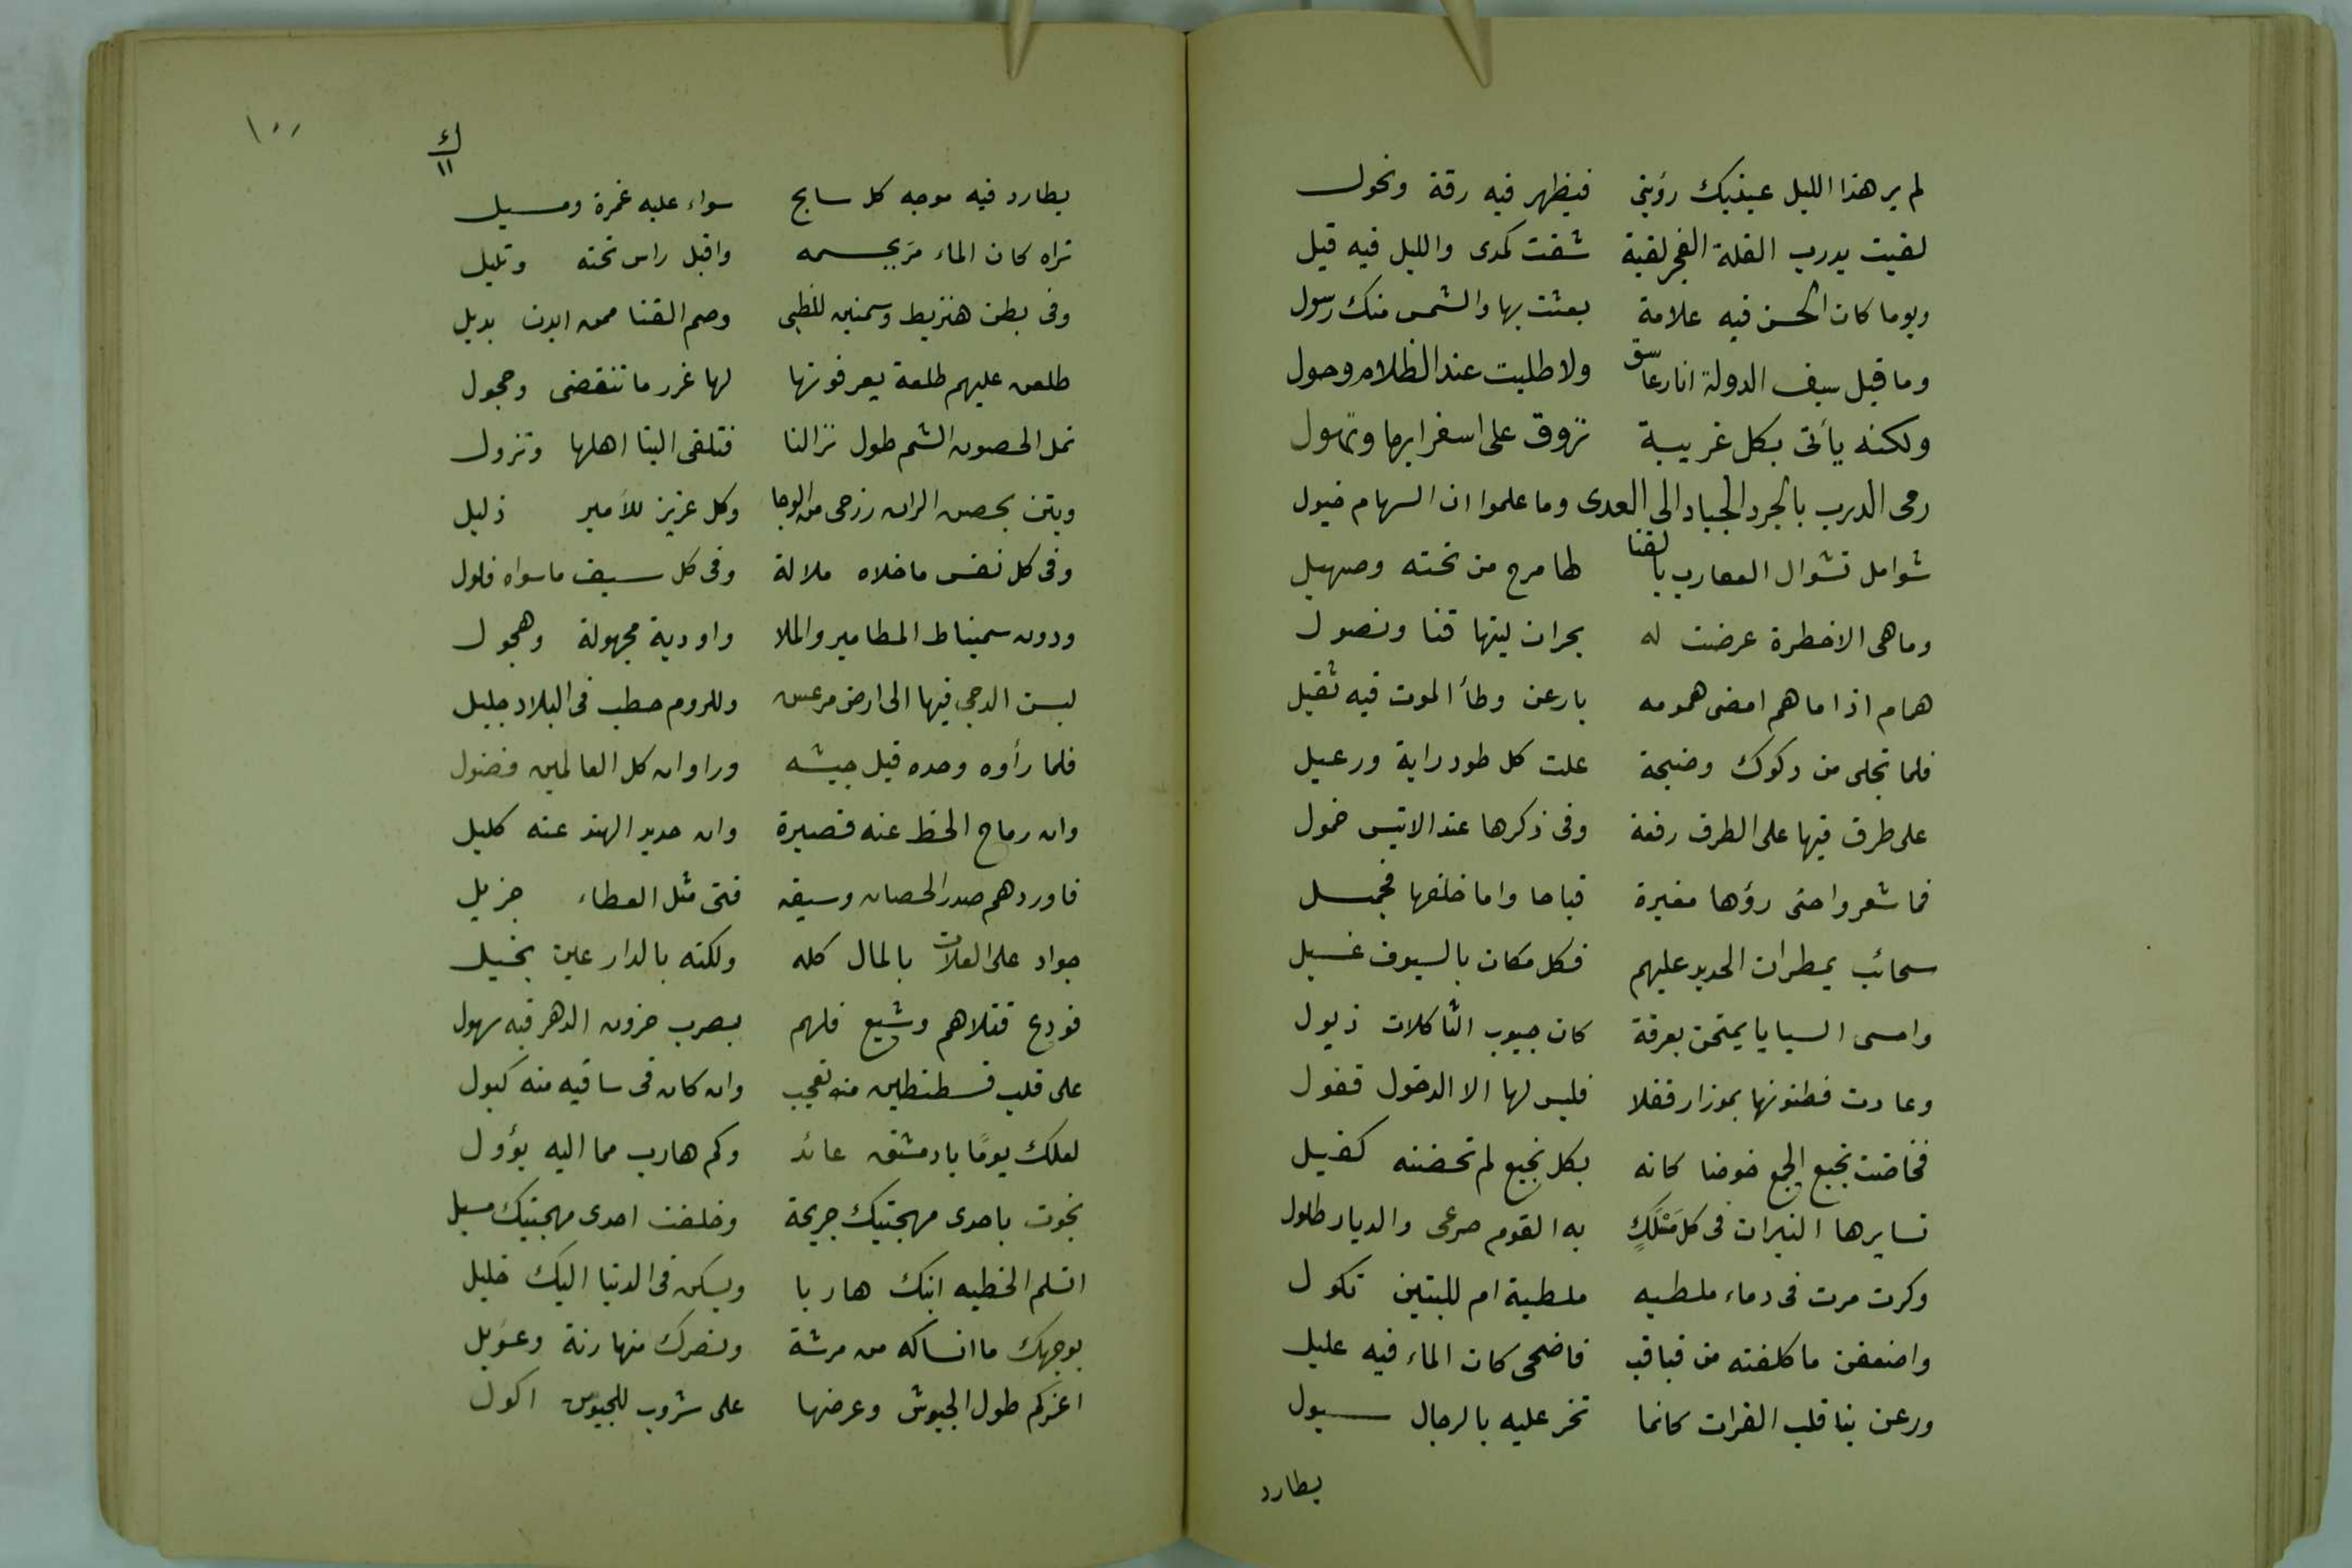 لم ير هذا الليل عينيك رؤيتى فيظهر فيه رقة ونحول
لقيت بدرب القلة الفجر لقية شفت كمدى والليل فيه قيل
ويوما كان الحسن فيه علامة بعثت بها والشمس منك رسول
وما قبل سيف الدولة اثار عاشق ولا طلبت عند الظلام وحول
ولكنه يأتى بكل غريبة تروق على استغرابها وتهول
رمى الدرب بالجرد الجياد الى العدى وما علموا ان السهام خيول
شوامل تشوال العقارب بالقنا لها مرح من تحته وصهيل
وما هى الا خطرة عرضت له بحران لبتها قنا ونصول
همام اذا ما هم امضى همومه بارعن وطأ الموت فيه ثقيل
فلما تجلى من دكوك وضيحة علت كل طود راية ورعيل
على طرق فيها على الطرق رفعة وفى ذكرها عند الانيس خمول
فما شعروا حتى رؤها مغيرة قباحا واما خلفها فجميل
سحائب يمطران الحديد عليهم فكل مكان بالسيوف غسيل
وامسى السبايا ينتحبن بعرقة كان جيوب الثاكلات ذيول
وعادت فظنونها بموزار قفلا فليس لها الا الدخول قفول
فخاضت نجيع الجمع خوضا كانه بكل نجيع لم تخضنه كفيل
تسايرها النيران فى كل مسلك به القوم صرعى والديار طلول
وكرت مرت فى دماء ملطيه ملطية ام للبنين ثكول
واضعفن ما كلفنه من قباقب فاضحى كان الماء فيه عليل
ورعن بنا قلب الفرات كانما تخر عليه بالرجال سيول
يطارد
١٠٠
ك
١١
يطارد فيه موجه كل سابح سواء عليه غمرة ومسيل
تراه كان الماء مر بجسمه واقبل راس تحته وتليل
وفى بطن هنزيط وسمنين للظبى وصم القنا ممن ابدن بديل
طلعن عليهم طلعة يعرفونها لها غرر ما تنقضى وحجول
تمل الحصون الشم طول نزالنا فتلقى الينا اهلها وتزول
وبتن بحصن الران رزحى من الوجا وكل عزيز للأمير ذليل
وفى كل نفس ما خلاه ملالة وفى كل سيف ما سواه فلول
ودون سميناط المطامير والملا واودية مجهولة وهجول
لبسن الدجى فيها الى ارض مرعش وللروم خطب فى البلاد جليل
فلما رأوه وحده قبل جيشه وراوا ان كل العالمين فضول
وان رماح الخط عنه قصيرة وان حديد الهند عنه كليل
فاوردهم صدر الحصان وسيفه فتى مثل العطاء جزيل
جواد على العلات بالمال كله ولكنه بالدارعين بخيل
فودع قتلاهم وشيع فلهم بضرب حزون الدهر فيه سهول
على قلب قسطنطين منه تعجب وان كان فى ساقيه منه كبول
لعلك يومًا يا دمشق عائد وكم هارب مما اليه يؤول
نجوت باحدى مهجتيك جريحة وخلفت احدى مهجتيك تسيل
اتسلم الخطيه ابنك هاربا ويسكن فى الدنيا اليك خليل
بوجهك ما انساكه من مرشة ونصرك منها رنة وعويل
اغركم طول الجيوش وعرضها على شروب للجيوش اكول